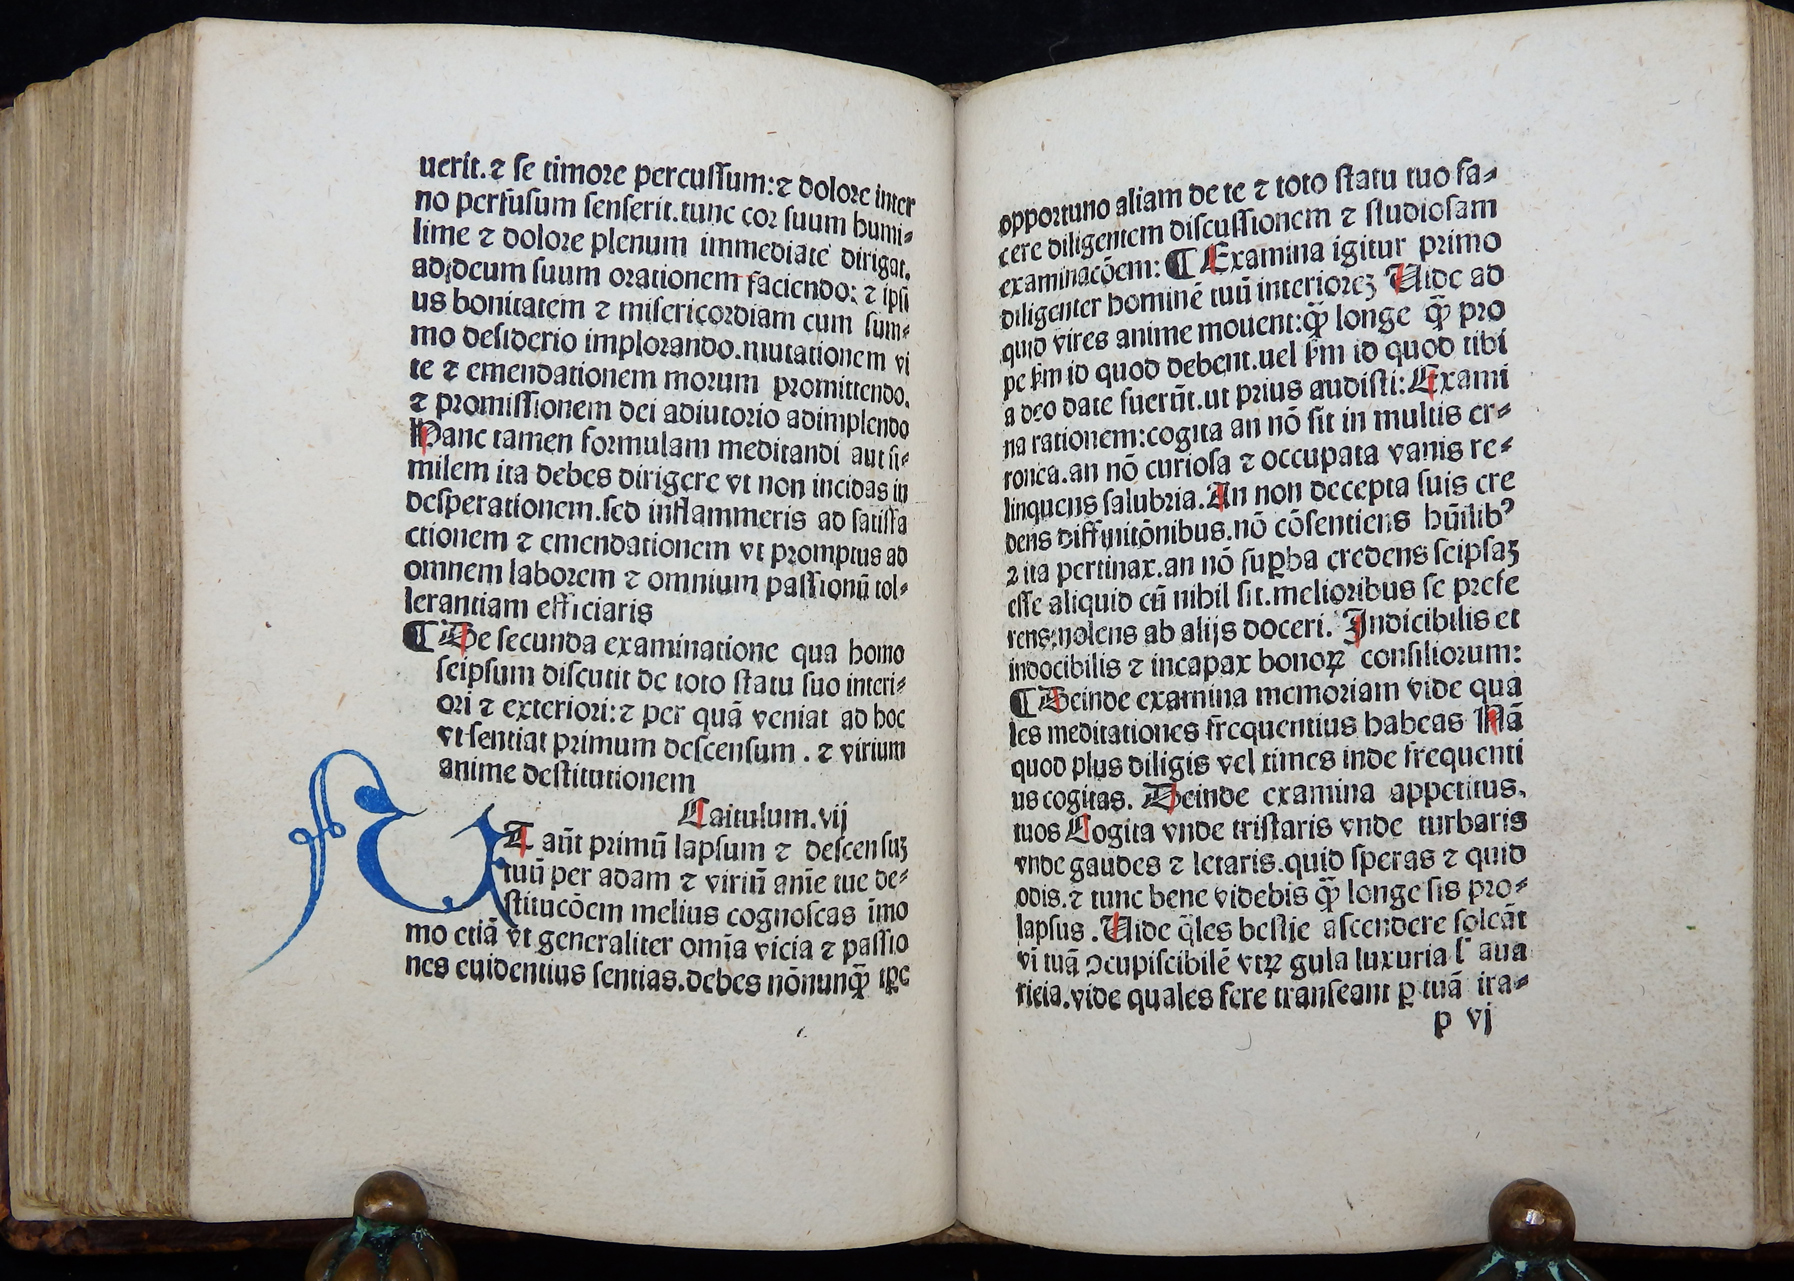 uerit.⁊ se timore percussum:⁊ dolore inter
no perfusum senserit.tunc cor suum humi⸗
lime ⁊ dolore plenum immediate dirigat.
ad iocum suum orationem faciendo: ⁊ ipsi
us bonitatem ⁊ misericordiam cum sum⸗
mo desiderio implorando.mutationem vi
te ⁊ emendationem morum promittendo.
⁊ promissionem dei adiutorio adimplendo
Hanc tamen formulam meditandi aut si⸗
milem ita debes dirigere vt non incidas in
desperationem.sed inflammeris ad satisfa
ctionem ⁊ emendationem vt promptus ad
omnem laborem ⁊ omnium passionū tol⸗
lerantiam efficiaris
¶ De secunda examinatione qua homo
seipsum discutit de toto statu suo interi⸗
ori ⁊ exteriori:⁊ per quā veniat ad hoc
vt sentiat primum descensum . ⁊ virium
anime destitutionem
Caitulum.vij
UT aūt primū lapsum ⁊ descensuꝫ
tuū per adam ⁊ viriū anīe tue de⸗
stitucōem melius cognoscas īmo
mo etiā vt generaliter omīa vicia ⁊ passio
nes euidentius sentias.debes nōnunqꝫ̄ tꝑe
opportuno aliam de te ⁊ toto statu tuo fa⸗
cere diligentem discussionem ⁊ studiosam
examinacōem: ¶ Examina igitur primo
diligenter hominē tuū interioreꝫ Uide ad
quid vires anime mouent:qꝫ̄ longe qꝫ̄ pro
pe ẜm id quod debent.uel ẜm id quod tibi
a deo date fuerūt.ut prius audisti: Exami
na rationem:cogita an nō sit in multis er⸗
ronea.an nō curiosa ⁊ occupata vanis re⸗
linquens salubria. An non decepta suis cre
dens diffinitōnibus.nō cōsentiens hūilibꝰ
⁊ ita pertinax.an nō suꝑba credens seipsaꝫ
esse aliquid cū nihil sit.melioribus se prefe
rens:nolens ab alijs doceri. Indicibilis et
indocibilis ⁊ incapax bonoꝝ consiliorum:
¶ Deinde examina memoriam vide qua
les meditationes frequentius habeas Nā
quod plus diligis vel times inde frequenti
us cogitas. Deinde examina appetitus.
tuos Cogita vnde tristaris vnde turbaris
vnde gaudes ⁊ letaris.quid speras ⁊ quid
odis.⁊ tunc bene videbis qꝫ̄ longe sis pro⸗
lapsus . Uide q̄les bestie ascendere soleāt
vi tuā ꝯcupiscibilē vtꝝ gula luxuria ł aua
ricia.vide quales fere transeant ꝑ tuā ira⸗
p vj